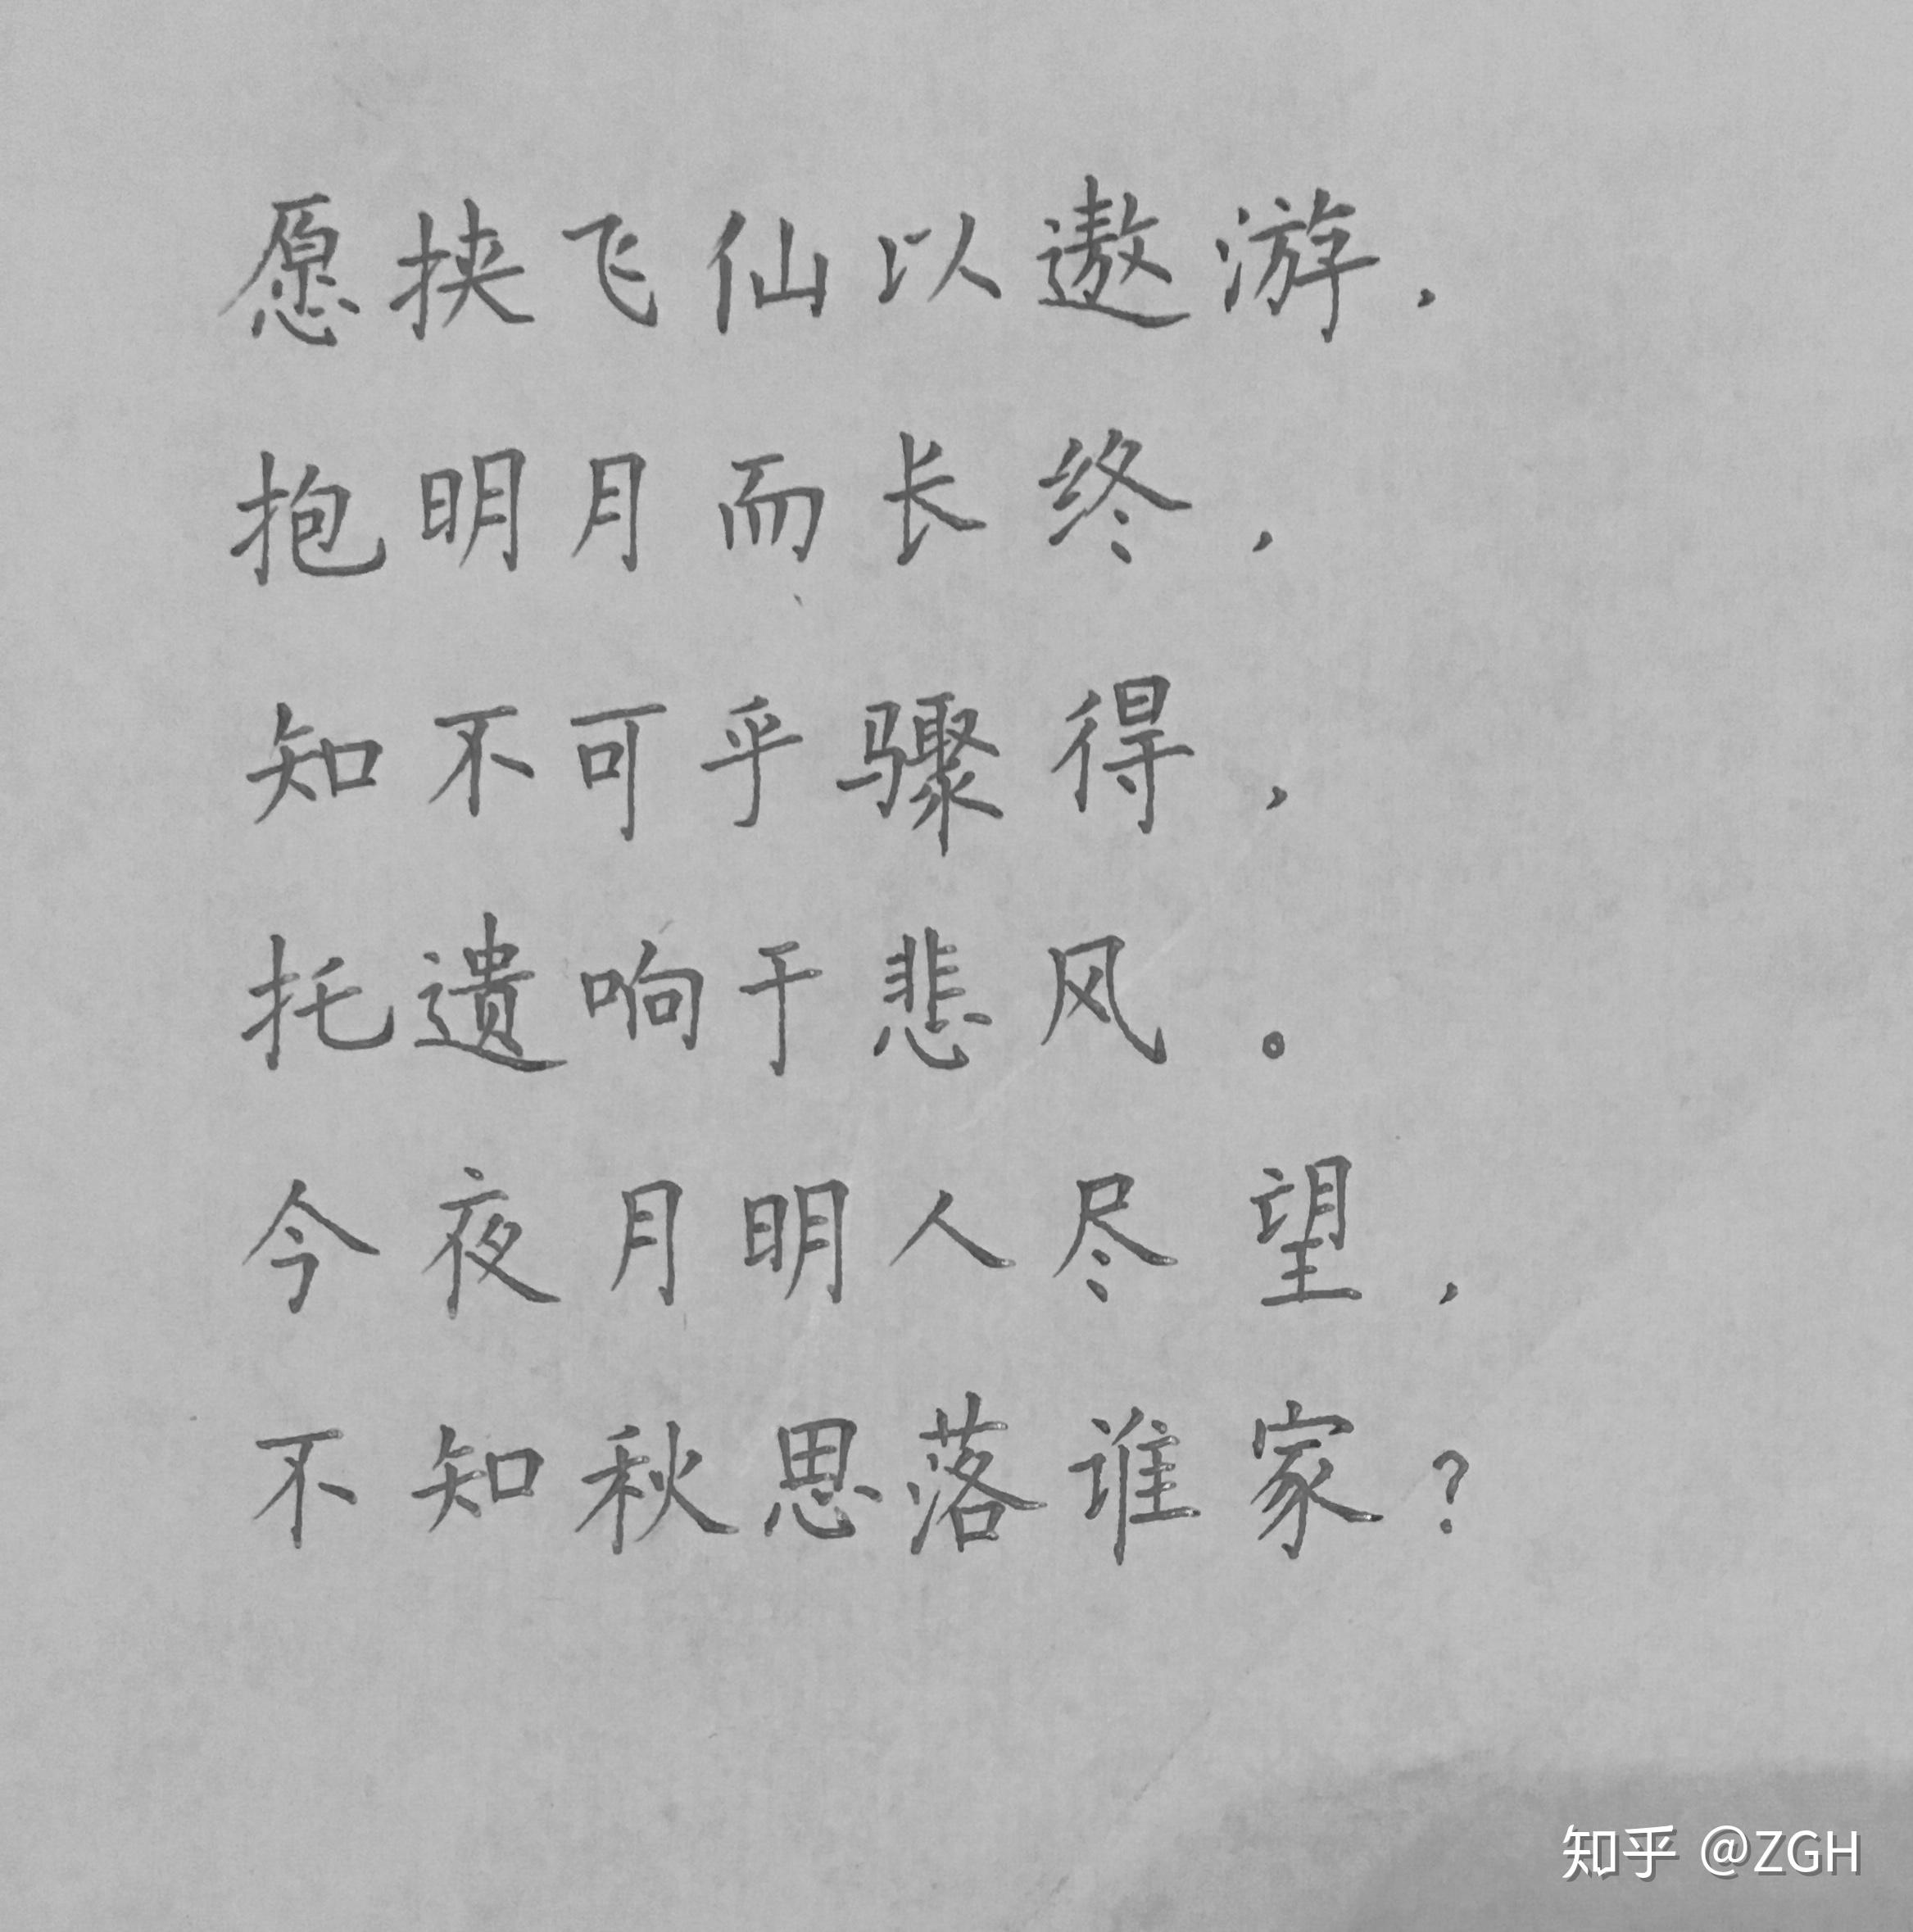 愿挟飞仙以遨游,
抱明月而长终,
知不可乎骤得,
托遗响于悲风。
今夜月明人尽望,
不知秋思落谁家?
知乎 @ZGH